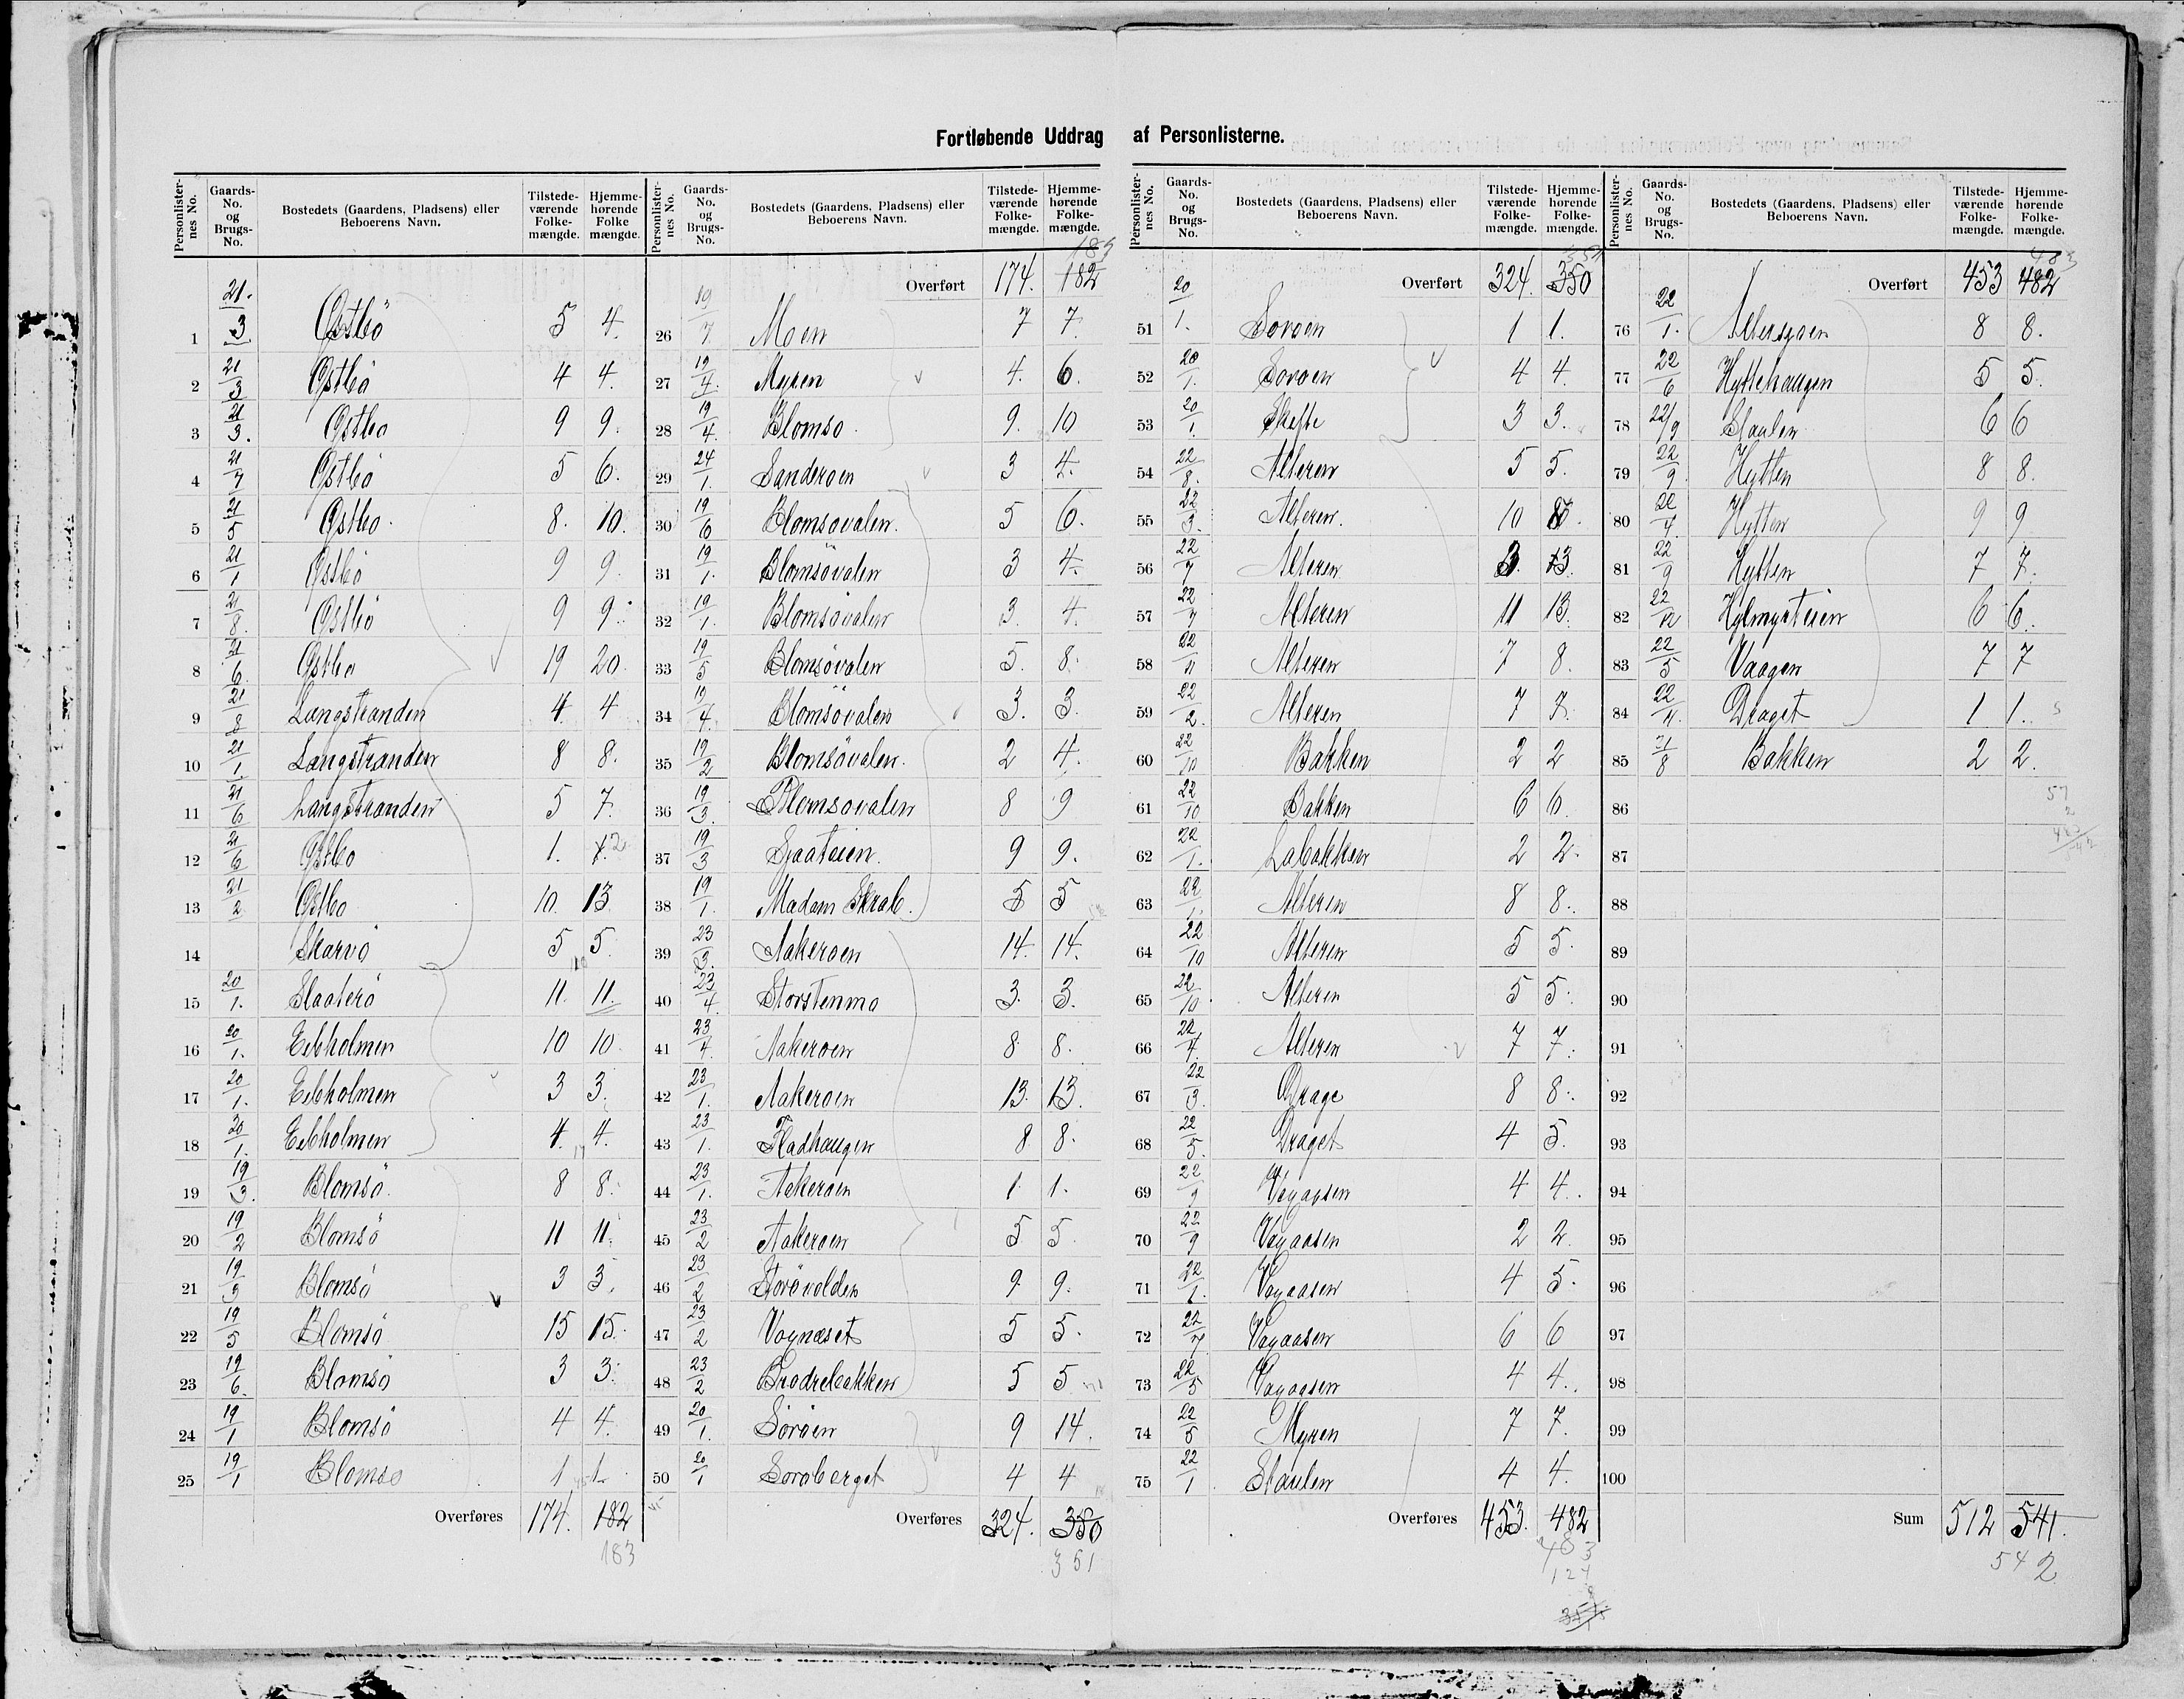 Fortløbende Uddrag af Personlisterne.
Personlisternes No. Gaards-No. og Brugs-No. Bostedets (Gaardens, Pladsens) eller Beboerens Navn. Tilstedeværende Folkemængde. Hjemmehørende Folkemængde.
1 21/3 Østbö 5 4.
2 21/3 Østbö 4 4.
3 21/3. Østbo 9 9.
4 21/7 Østbö 5 6.
5 21/5 Østbo. 8. 10.
6 21/1 Østbö 9 9.
7 21/8. Østbö 9 9.
8 21/6. Østbo 19 20.
9 21/8 Langstranden 4 4
10 21/1. Langstranden 8 8.
11 21/6 Langstranden 5 7.
12 21/6 Østbo 1. 2
13 21/2 Østbo 10. 13.
14 Skarvö 5 5.
15 20/1. Slaaterö 11. 11.
16 20/1. Eebholmen 10 10.
17 20/1. Eebholmen 3 3.
18 20/1. Eebholmen 4. 4.
19 19/3. Blomsö. 8 8.
20 19/2 Blomsö 11 11.
21 19/3 Blomsö 3 3.
22 19/5 Blomsö 15 15.
23 19/6. Blomsö 3 3.
24 19/1 Blomsö 4 4.
25 19/1 Blomso 1 1.
Overføres 174. 182
183
Personlisternes No. Gaards-No. og Brugs-No. Bostedets (Gaardens, Pladsens) eller Beboerens Navn. Tilstedeværende Folkemængde. Hjemmehørende Folkemængde.
183
Overført 174. 182
26 19/7 Moen 7 7.
27 19/4. Myren 4. 6.
28 19/4. Blomso. 9. 10
29 24/1. Sanderoen 3 4.
30 19/6 Blomsovalen. 5 6.
31 19/1. Blomsövalen 3 4.
32 19/1. Blomsövalen 3. 4.
33 19/5 Blomsövalen 5. 8.
34 19/4. Blomsövalen 3. 3.
35 19/2 Blomsövalen. 2 4.
36 19/3. Blomsovalen 8 9
37 19/3 Sjaateien. 9 9.
38 19/1. Madam Skrab. 5 5
39 23/3. Aakeroen 14. 14.
40 23/4. Storstenmo 3. 3.
41 23/4. Aakeroen 8. 8.
42 23/1. Aakeroen 13. 13.
43 23/1. Fladhaugen 8 8.
44 23/1. Aakeroen 1. 1.
45 23/2 Aakeroen 5 5.
46 23/2 Storövolden 9. 9.
47 23/2 Vognæset 5 5.
48 23/2 Brodrebakken 5 5
49 20/1. Soröen 9 14.
50 20/1 Soroberget 4 4
Overføres 324. 350
351
Personlisternes No. Gaards-No. og Brugs-No. Bostedets (Gaardens, Pladsens) eller Beboerens Navn. Tilstedeværende Folkemængde. Hjemmehørende Folkemængde.
351
Overført 324. 350
51 20/1. Soroen 1 1.
52 20/1. Soroen 4 4.
53 20/1. Skefte 3 3.
54 22/8. Alteren 5 5.
55 22/3. Alteren. 10
56 22/7 Alteren 3. 3.
57 22/7 Alteren 11 13.
58 22/11 Alteren 7 8.
59 22/2. Alteren 7 7.
60 22/10 Bakken 2 2
61 22/10 Bakken 6 6.
62 22/1. Labakken 2 2.
63 22/1. Alteren 8 8.
64 22/10 Alteren 5 5.
65 22/10. Alteren 5 5.
66 22/4. Alteren 7 7.
67 22/3. Drage 8 8.
68 22/5. Draget 4 5.
69 22/9 Vayaasen 4 4.
70 22/9 Vayaasen 2 2.
71 22/1. Vayaasen 4 5.
72 22/7 Vayaasen 6 6
73 22/5 Vayaasen 4 4.
74 22/5 Myren 7 7.
75 22/1 Staulen 4 4.
Overføres 453. 482
483
124
Personlisternes No. Gaards-No. og Brugs-No. Bostedets (Gaardens, Pladsens) eller Beboerens Navn. Tilstedeværende Folkemængde. Hjemmehørende Folkemængde.
483
Overført 453 482
76 22/1. 8 8.
77 22/6 Hyttehaugen 5 5.
78 22/9 Staulen 6 6
79 22/9. Hytten 8 8.
80 22/4. Hytten 9 9
81 22/9 Hytten 7 7.
82 22/12 6 6.
83 22/5 Vaagen 7 7
84 22/11. Draget 1 1.
85 21/8 Bakken 2 2.
86
87
88
89
90
91
92
93
94
95
96
97
98
99
100
Sum 512 541.
542